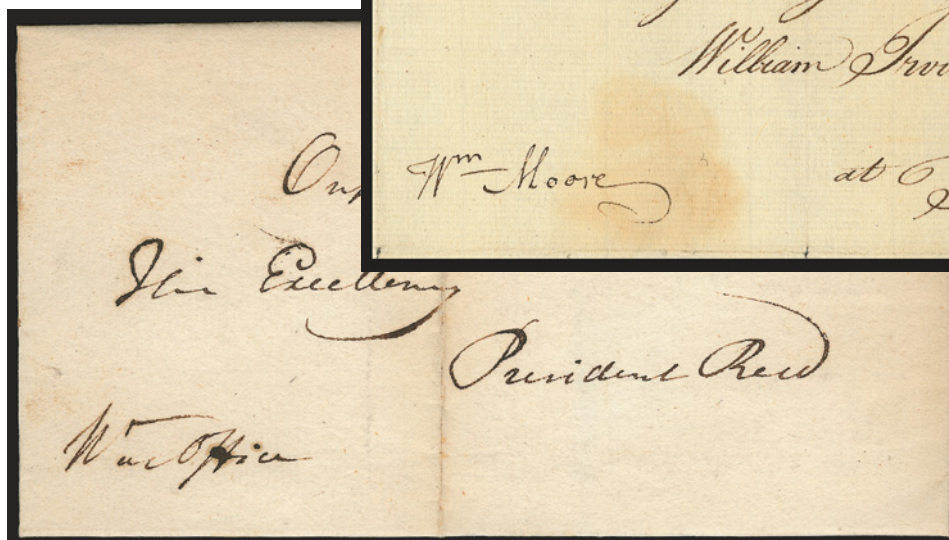 William
Wm Moore
at
His Excellency
President Reed
War Office